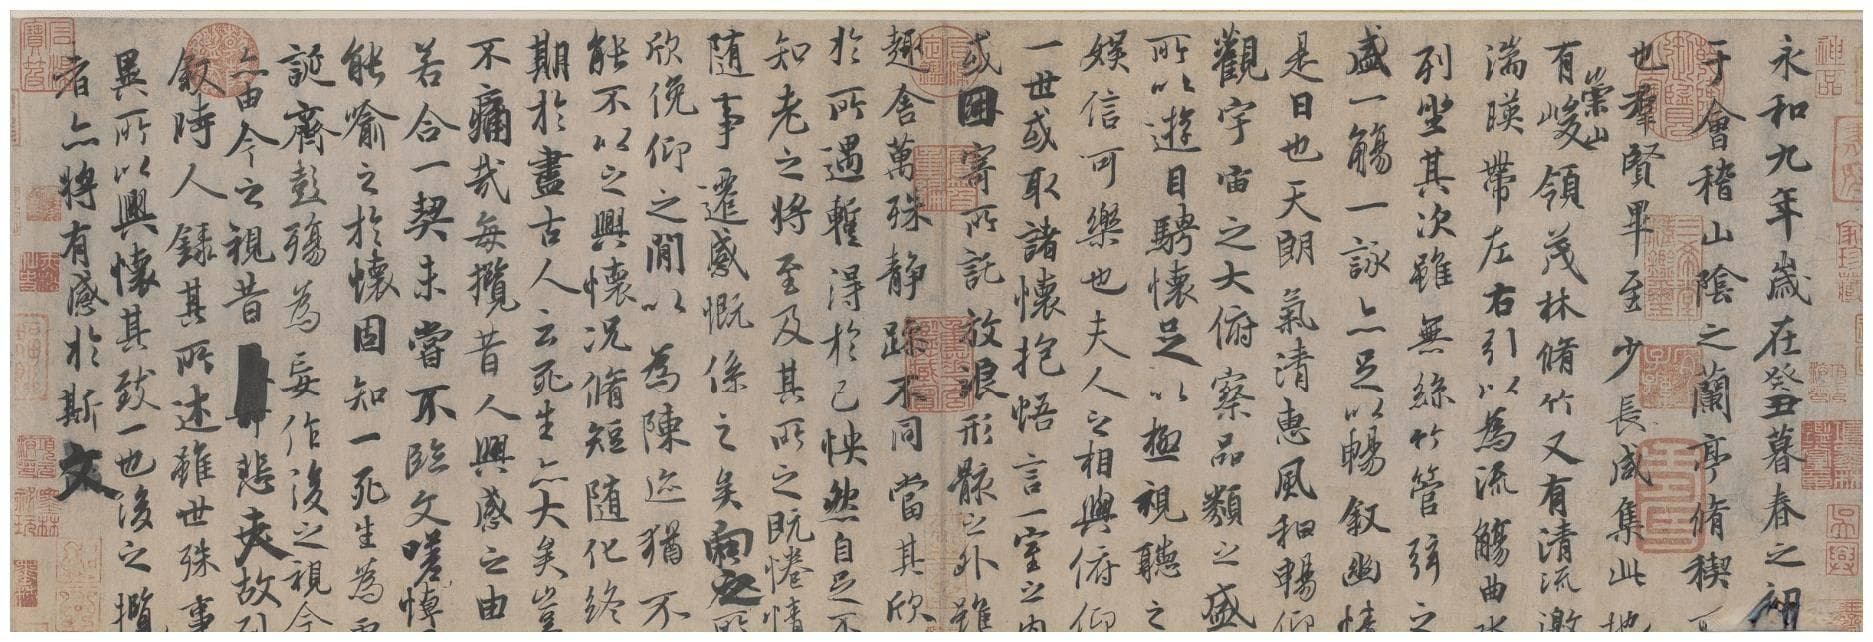 永和九年歲在癸丑暮春之初
于會稽山陰之蘭亭脩稧
也羣賢畢至少長咸集此地
有崇山峻領茂林脩竹又有清流激
湍暎帶左右引以為流觴曲水
列坐其次雖無絲竹管弦之
盛一觴一詠亦足以暢敘幽情
是日也天朗氣清惠風和暢仰
觀宇宙之大俯察品類之盛
所以遊目騁懷足以極視聽之
娛信可樂也夫人之相與俯仰
一世或取諸懷抱悟言一室之內
或因寄所託放浪形骸之外雖
趣舍萬殊靜躁不同當其欣
於所遇暫得於己怏然自足不
知老之將至及其所之既惓情
隨事遷感慨係之矣向之所
欣俛仰之閒以為陳迹猶不
能不以之興懷況脩短隨化終
期於盡古人云死生亦大矣豈
不痛哉每攬昔人興感之由
若合一契未嘗不臨文嗟悼
能喻之於懷固知一死生為虛
誕齊彭殤為妄作後之視今
亦由今之視昔悲夫故列
敘時人錄其所述雖世殊事
異所以興懷其致一也後之攬
者亦將有感於斯文
神品